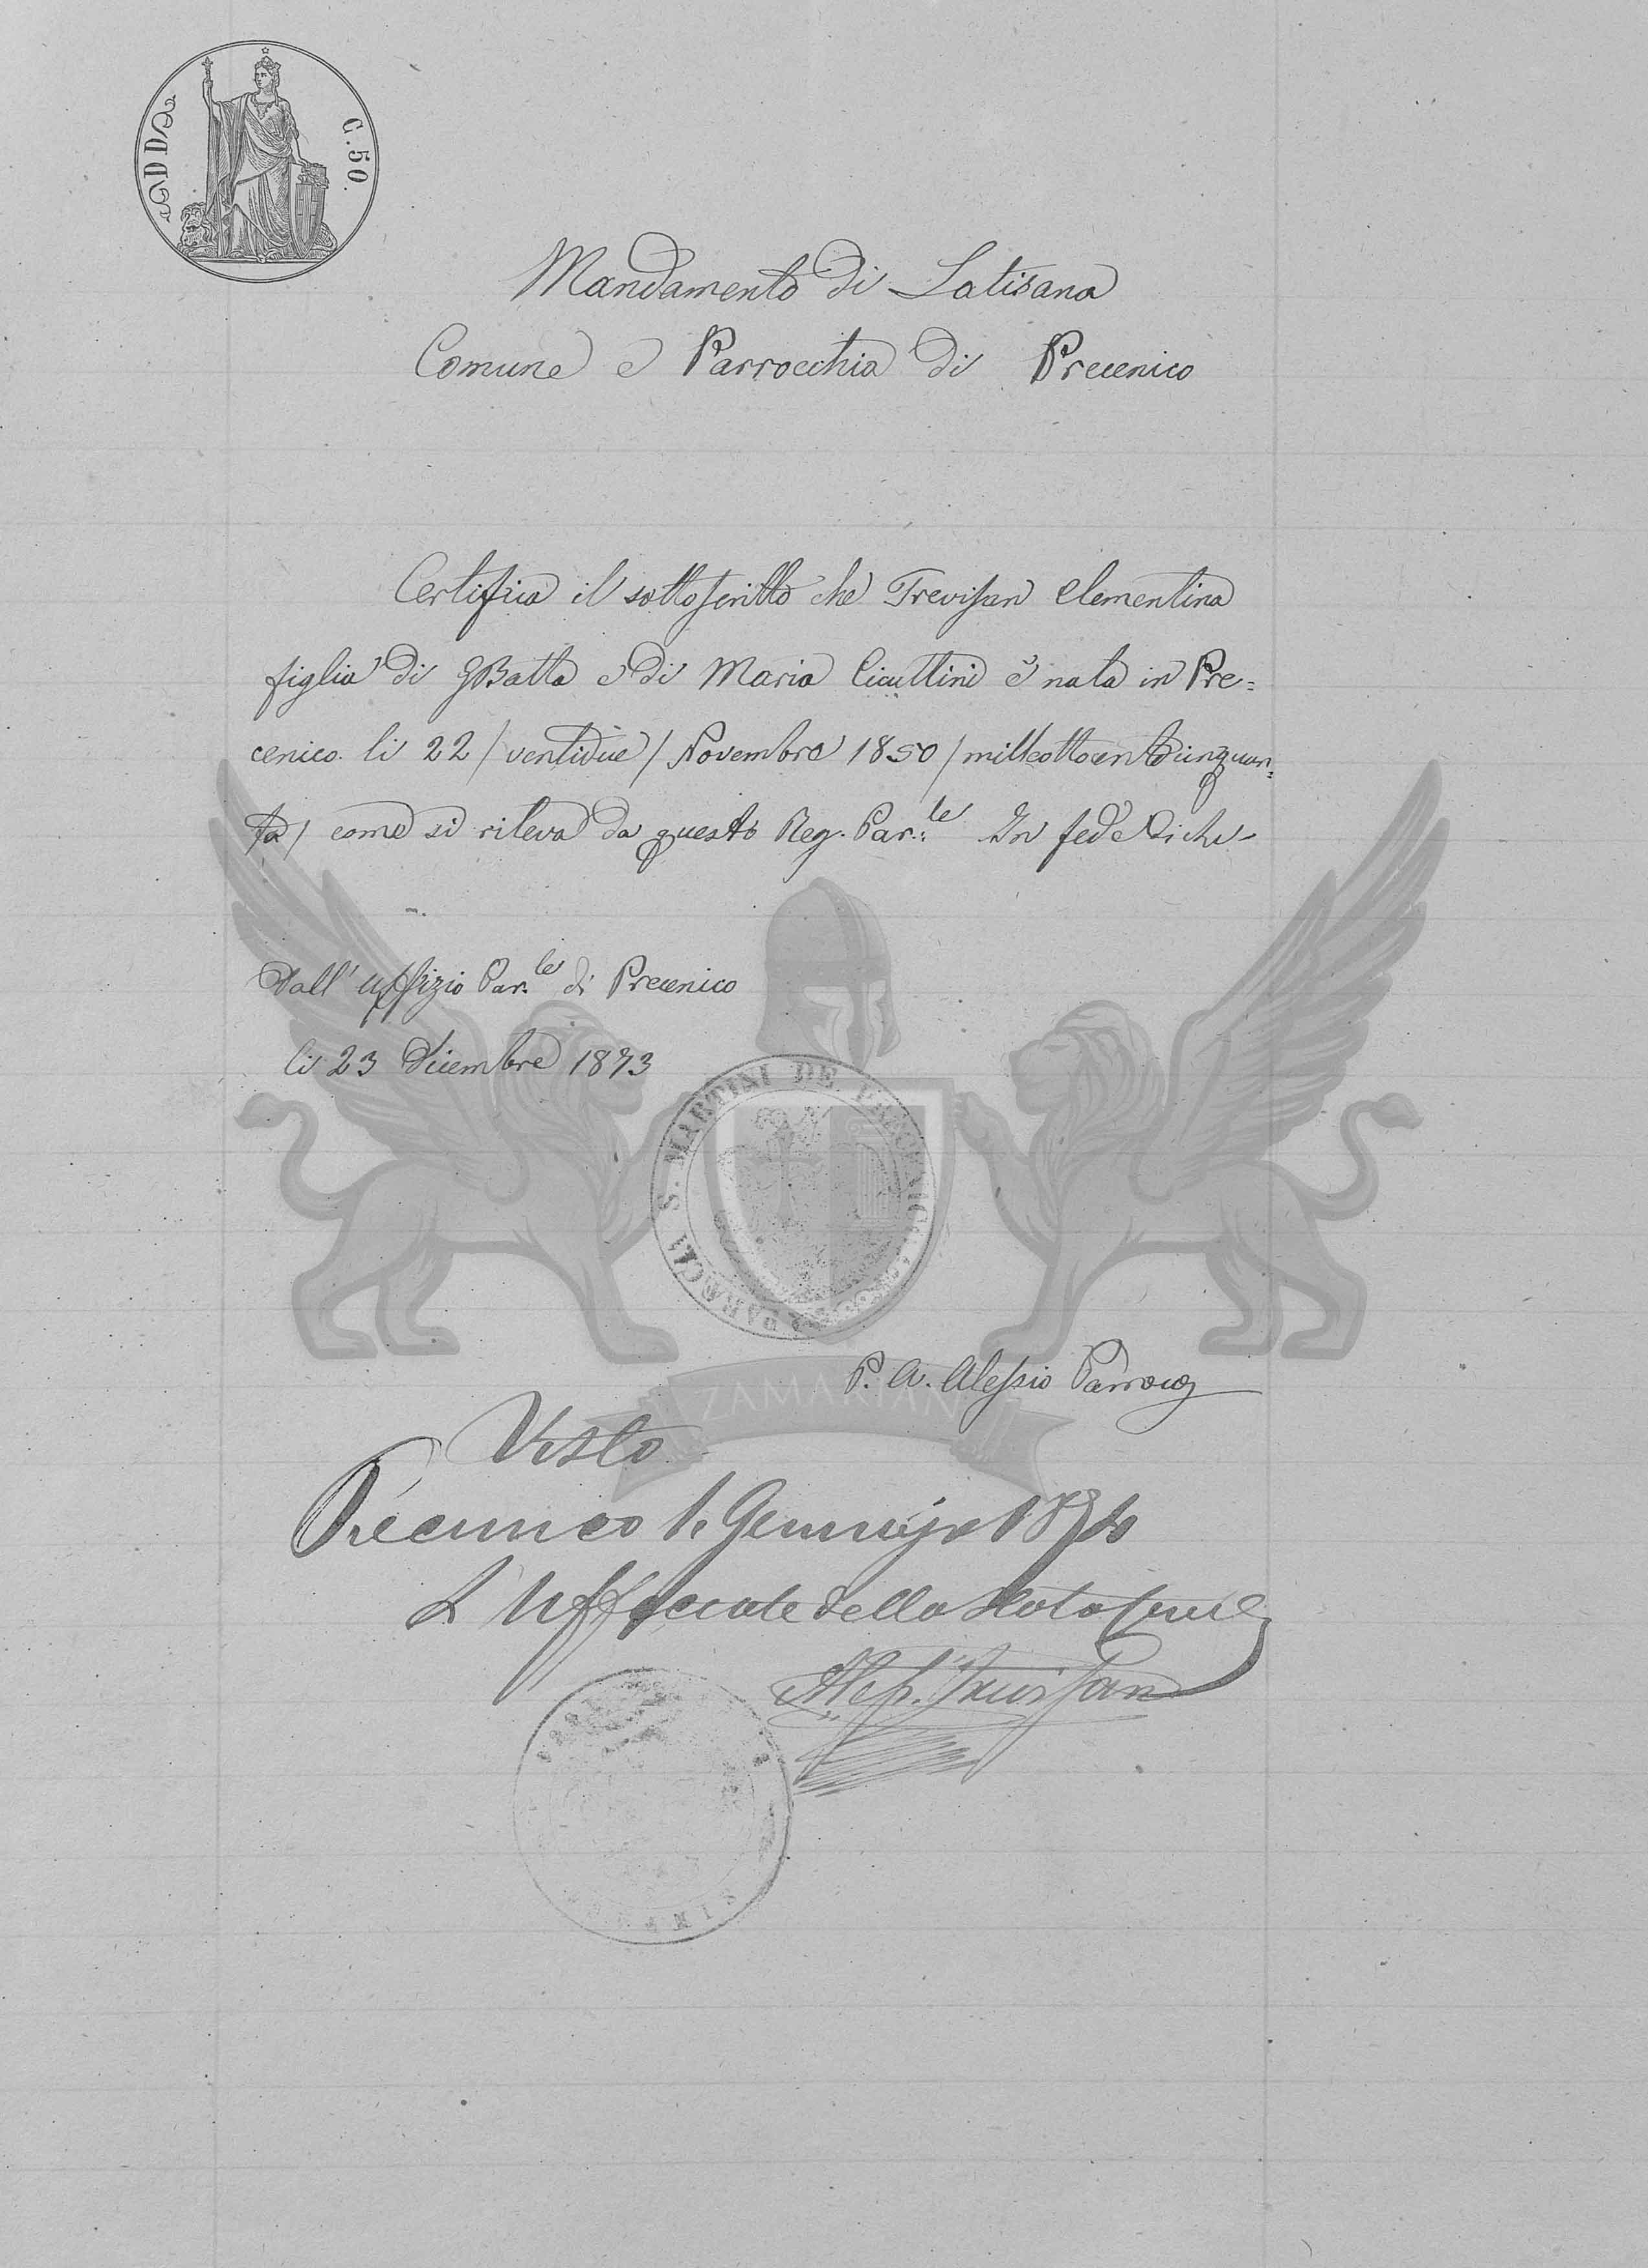 C. 50.
Mandamento di Latisana
Comune e Parrocchia di Precenico
Certifica il sottoscritto che Trevisan Clementina
figlia di GBatta e di Maria Cicuttini è nata in Pre=
cenico li 22 / ventidue / Novembre 1850 / milleottocentocinquan=
ta / come si rileva da questo Reg. Par.le In fede di che
Dall' Uffizio Par.le di Precenico
li 23 Dicembre 1873
S. MARTINI DE
P. A. Alessio Parroco
ZAMARIAN
Visto
Precenico 1. Gennajo 1874
L'Ufficiale dello Stato Civile
Aless. Trevisan